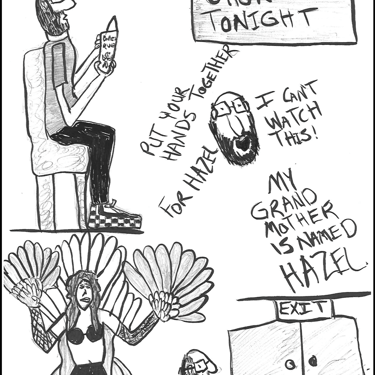 TONIGHT
PUT YOUR
HANDS TOGETHER
FOR HAZEL
I CAN'T
WATCH
THIS!
MY
GRAND
MOTHER
IS NAMED
HAZEL.
EXIT